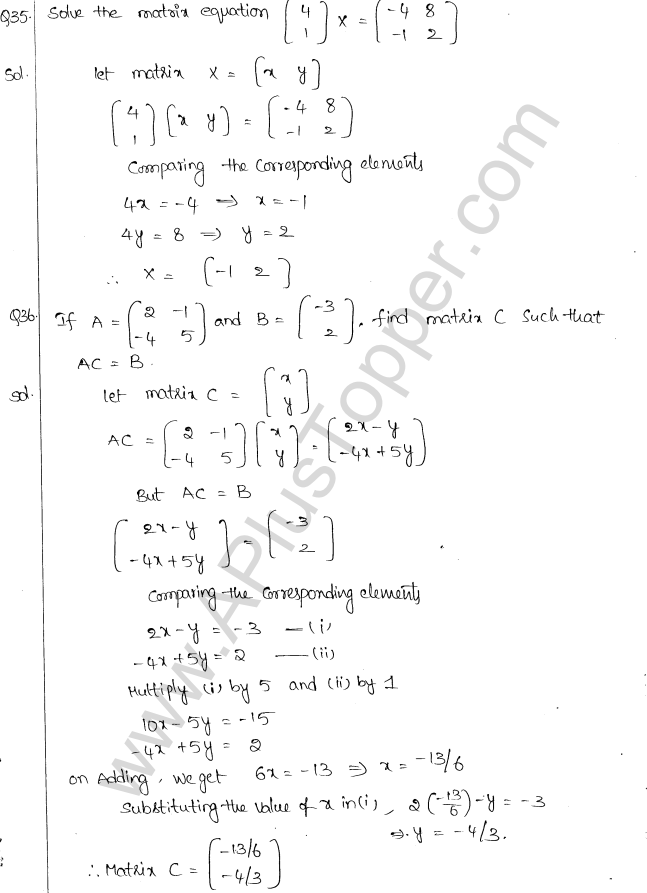 Q35. Solve the matrix equation (4 1) X = (-4 8 -1 2)
Sol. let matrix X = [x y]
(4 1) (x y) = (-4 8 -1 2)
Comparing the corresponding elements
4x = -4 ⇒ x = -1
4y = 8 ⇒ y = 2
∴ X = (-1 2)
Q36. If A = (2 -1 -4 5) and B = (-3 2). find matrix C such that
AC = B.
Sol. let matrix C = (x y)
AC = (2 -1 -4 5) (x y) = (2x - y -4x + 5y)
But AC = B
(2x - y -4x + 5y) = (-3 2)
Comparing the corresponding elements
2x - y = -3 —(i)
-4x + 5y = 2 —(ii)
Multiply (i) by 5 and (ii) by 1
10x - 5y = -15
-4x + 5y = 2
on Adding, we get 6x = -13 ⇒ x = -13/6
Substituting the value of x in (i), 2(-13/6) - y = -3
⇒ y = -4/3.
∴ Matrix C = (-13/6 -4/3)
www.APlusTopper.com